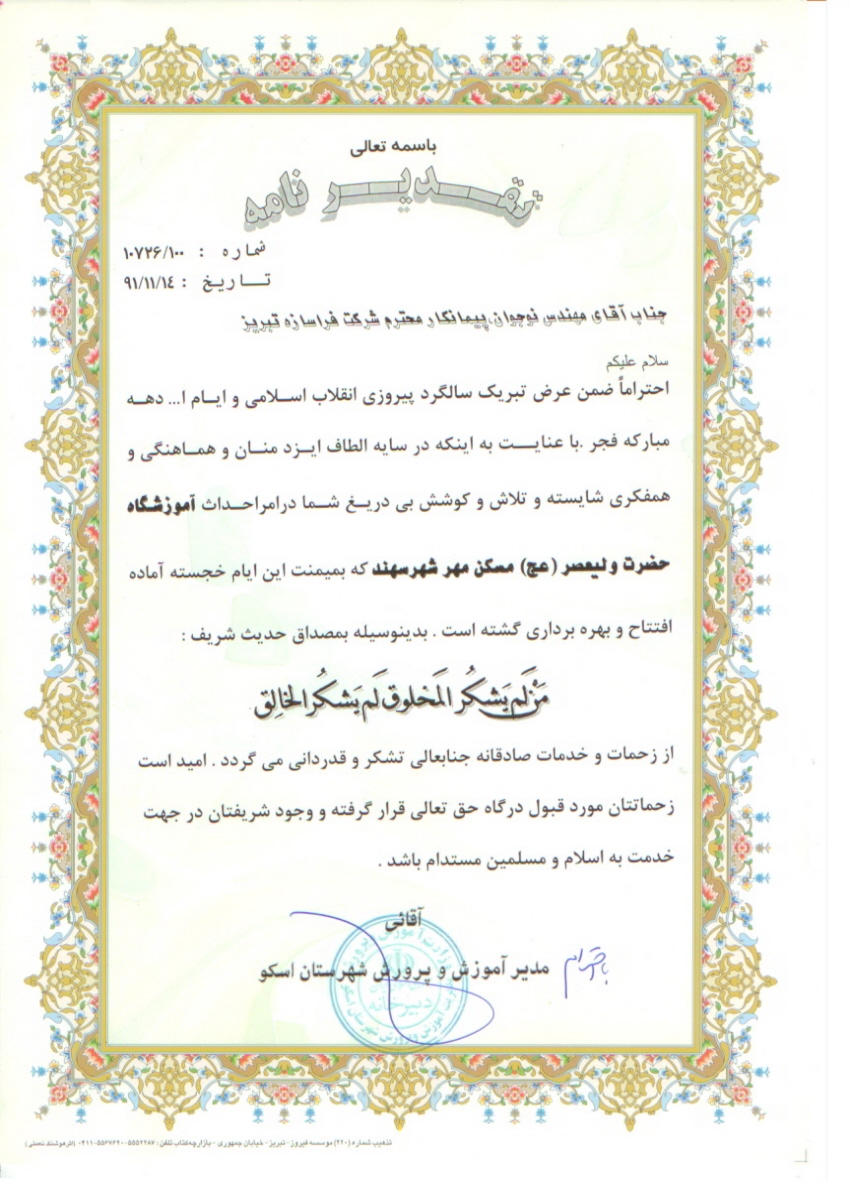 باسمه تعالی
تقدیر نامه
شماره : ۱۰۷۲۶/۱۰۰
تاریخ : ۹۱/۱۱/۱٤
جناب آقای مهندس نوجوان.پیمانکار محترم شرکت فراسازه تبریز
سلام علیکم
احتراماً ضمن عرض تبریک سالگرد پیروزی انقلاب اسلامی و ایام ا... دهه
مبارکه فجر .با عنایت به اینکه در سایه الطاف ایزد منان و هماهنگی و
همفکری شایسته و تلاش و کوشش بی دریغ شما درامراحداث آموزشگاه
حضرت ولیعصر (عج) مسکن مهر شهرسهند که بمیمنت این ایام خجسته آماده
افتتاح و بهره برداری گشته است . بدینوسیله بمصداق حدیث شریف :
مَنْ لَم یَشکُرِ المَخلوق لَم یَشکُرِ الخالِق
از زحمات و خدمات صادقانه جنابعالی تشکر و قدردانی می گردد . امید است
زحماتتان مورد قبول درگاه حق تعالی قرار گرفته و وجود شریفتان در جهت
خدمت به اسلام و مسلمین مستدام باشد .
آقائی
مدیر آموزش و پرورش شهرستان اسکو
با احترام
دبیرخانه
تذهیب شماره (۲۲۰) موسسه فیروز - تبریز - خیابان جمهوری - بازارچه کتاب تلفن :